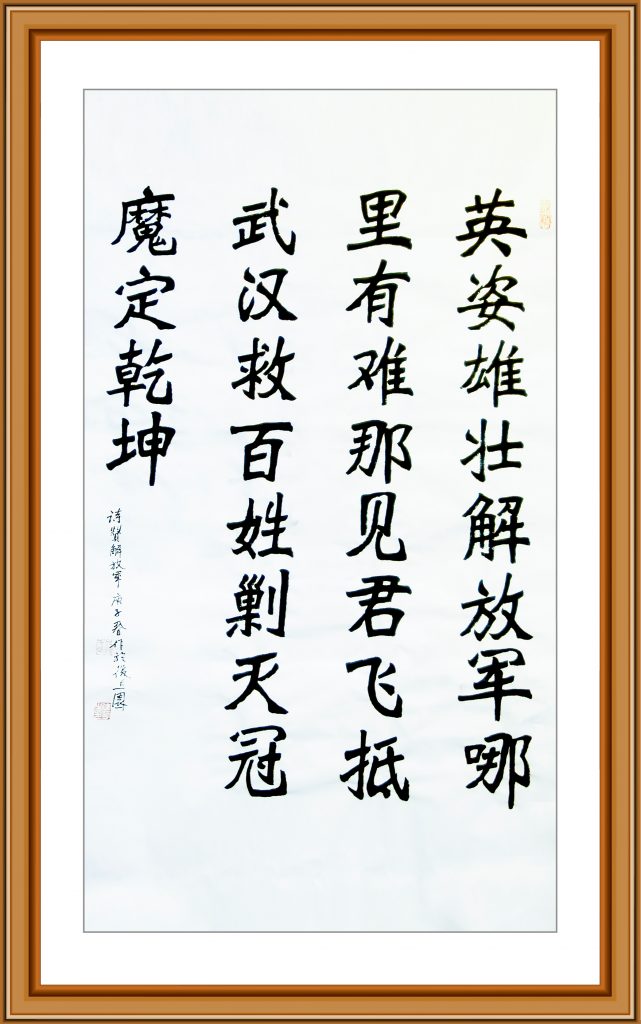 英姿雄壮解放军哪
里有难那见君飞抵
武汉救百姓剿灭冠
魔定乾坤
诗赞解放军 庚子春作於